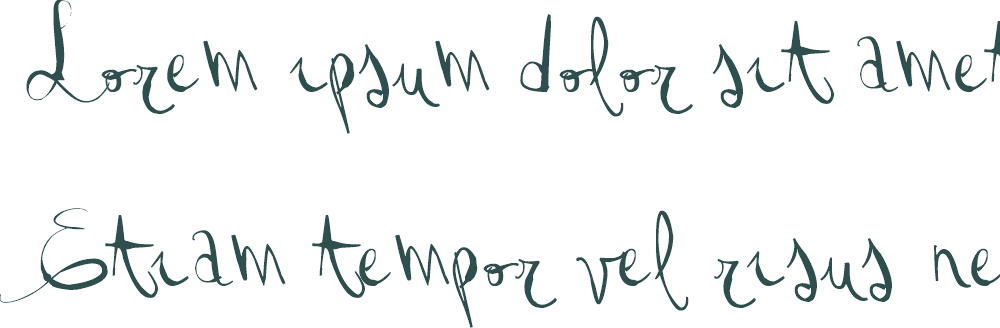 Lorem ipsum dolor sit amet
Etiam tempor vel risus ne